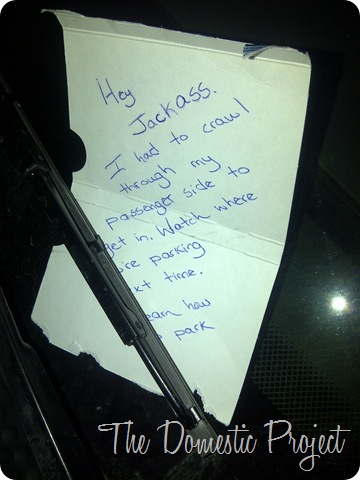 Hey
Jackass.
I had to crawl
through my
passenger side to
get in. Watch where
you're parking
next time.
Learn how
to park
The Domestic Project